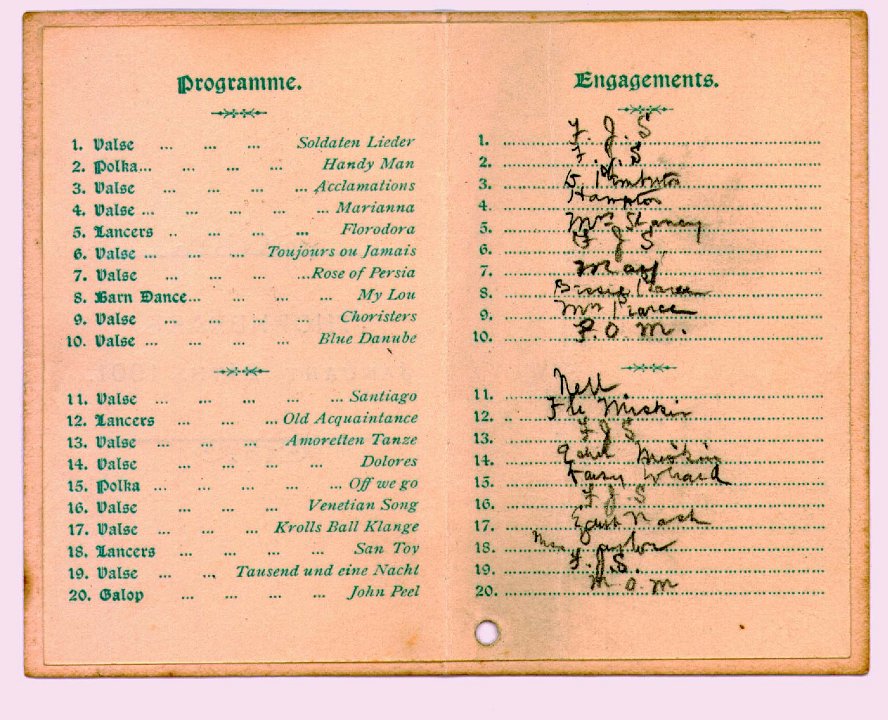 Programme.
1. Valse ... ... ... Soldaten Lieder
2. Polka... ... ... ... Handy Man
3. Valse ... ... ... ... Acclamations
4. Valse ... ... ... ... ... Marianna
5. Lancers .. ... ... ... Florodora
6. Valse ... ... ... Toujours ou Jamais
7. Valse ... ... ... ... Rose of Persia
8. Barn Dance... ... ... ... My Lou
9. Valse ... ... ... ... Choristers
10. Valse ... ... ... ... Blue Danube
11. Valse ... ... ... ... ... Santiago
12. Lancers ... ... ... Old Acquaintance
13. Valse ... ... ... Amoretten Tanze
14. Valse ... ... ... ... Dolores
15. Polka ... ... ... ... ... Off we go
16. Valse ... ... ... Venetian Song
17. Valse ... ... ... Krolls Ball Klange
18. Lancers ... ... ... ... San Toy
19. Valse ... ... Tausend und eine Nacht
20. Galop ... ... ... ... John Peel
Engagements.
1. F. J. S
2. F. J. S
3.
4. Hampton
5. Mrs
6. F J S
7. May
8. Bessie Pearce
9. Mrs Pearce
10. P. O. M.
11. Nell
12. Flo Miskin
13. F J S
14. Edith Miskin
15. Fairy
16. F J S
17. Edith Nash
18.
19. F. J. S.
20. M O M